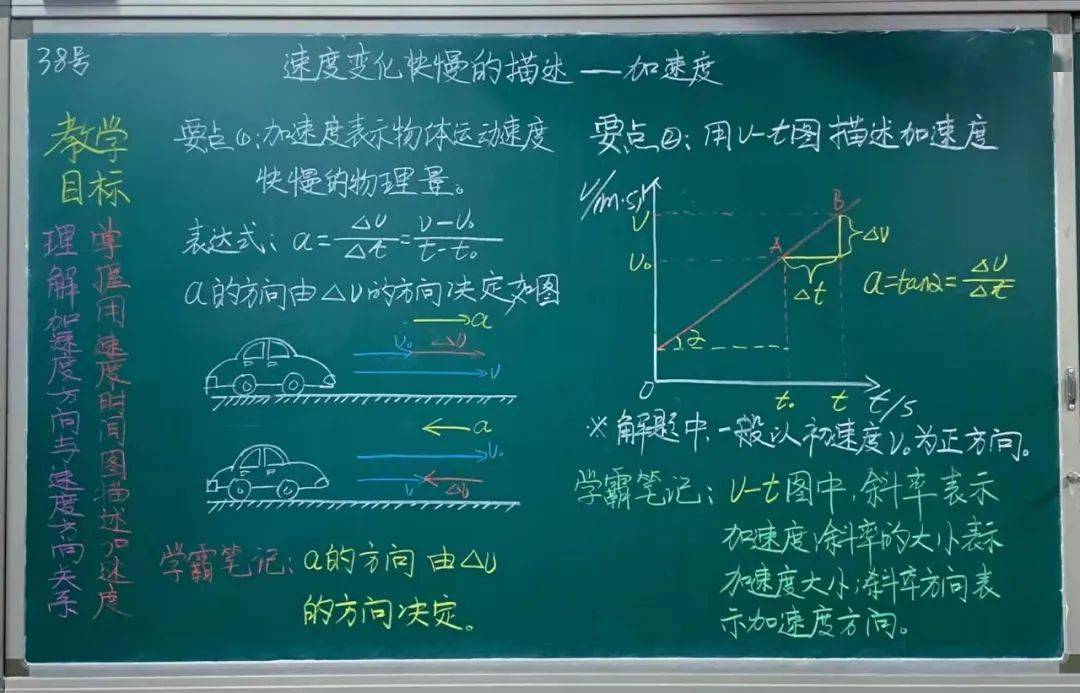 38号
速度变化快慢的描述——加速度
教学
目标
掌握用速度时间图描述加速度
理解加速度方向与速度方向关系
要点①:加速度表示物体运动速度
快慢的物理量。
表达式: a=Δv/Δt=v-v₀/t-t₀
a的方向由Δv的方向决定如图
a
v₀ Δv
v
a
v₀
v Δv
学霸笔记: a的方向由Δv
的方向决定。
要点②: 用v-t图描述加速度
v/(m·s)
v
B
Δv
v₀
A
Δt
a=tanα=Δv/Δt
α
0
t₀ t t/s
※解题中,一般以初速度v₀为正方向。
学霸笔记: v-t图中,斜率表示
加速度;斜率的大小表示
加速度大小;斜率方向表
示加速度方向。